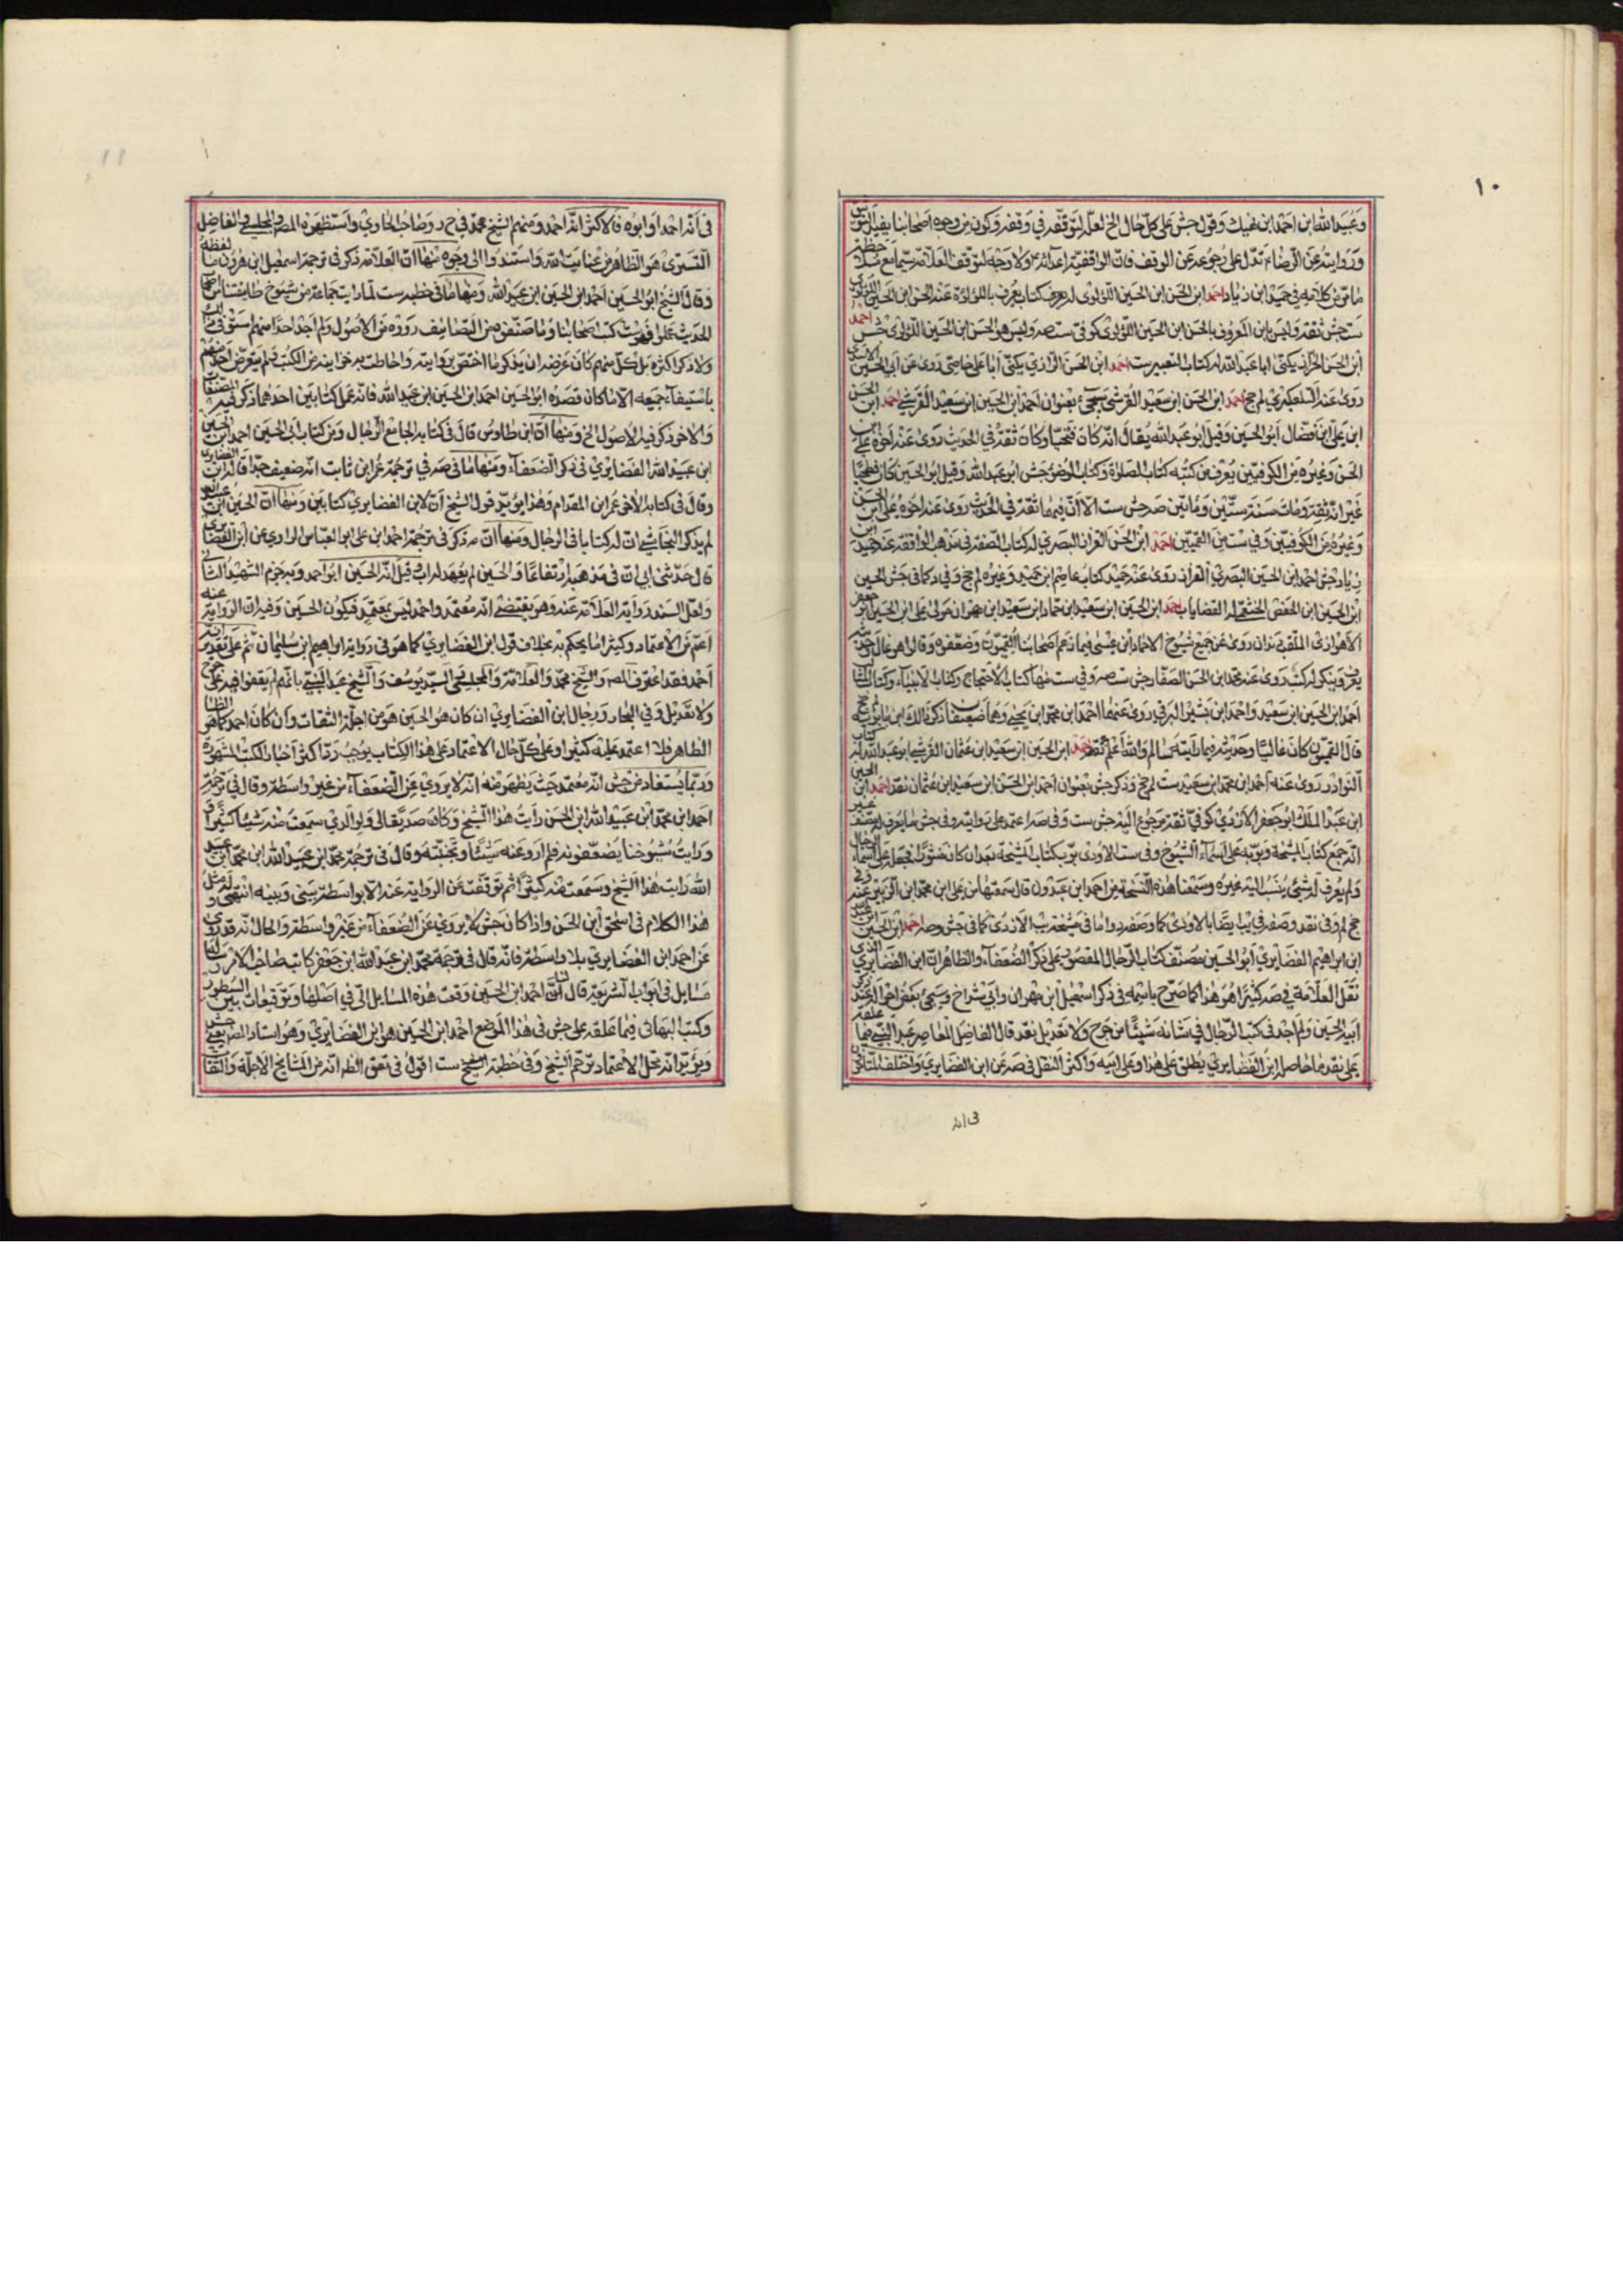 ١٠
وعبيد الله ابن احمد ابن نهيك وقول جش على كل حال الخ لعله لتوقفه في وقفه وكون من وجوه اصحابنا
وروايته عن الرضاء تدل على رجوعه عن الوقف فان الواقفية اعدائه ولا وجه لتوقف العلامة سيما مع
ما تقدم من كلامه في حميد ابن زياد احمد ابن الحسن ابن الحسين اللؤلؤى له يعرف كتاب يعرف باللؤلؤة عند الحسن ابن الحسين
ست جش ثقة وليس بابن المعروف بالحسن ابن الحسين اللؤلؤى كوفى ست صه وليس هو الحسن ابن الحسين اللؤلؤى جش احمد
ابن الحسن الخزاز يكنى ابا عبد الله له كتاب التفسير ست احمد ابن الحسن الرازي يكنى ابا على خاصى روى عن ابي الحسين الاسدى
روى عنه التلعكبري لم جخ احمد ابن الحسن ابن سعيد القرشى سيجئ بعنوان احمد ابن الحسين ابن سعيد القرشي احمد ابن الحسن
ابن على ابن فضال ابو الحسين وقيل ابو عبد الله يقال انه كان فطحيا وكان ثقة في الحديث روى عنه اخوه على ابن
الحسن وغيره من الكوفيين يعرف من كتبه كتاب الصلوة وكتاب الوضوء جش ابو عبد الله وقيل ابو الحسين كان فطحيا
غير انه ثقة ومات سنة ستين ومأتين صه جش ست الا ان فيهما ثقة في الحديث روى عنه اخوه على ابن الحسن
وغيره من الكوفيين وفي ست من القميين احمد ابن الحسن القزاز البصري له كتاب الصفة في مذهب الواقفة عنه حميد ابن
زياد جش احمد ابن الحسين البصري القزاز روى عنه حميد كتاب عاصم ابن حميد وغيره لم جخ وفي د كما في جش الحسين
ابن الحسين ابن الحفص الخثعمي له القضايا ب احمد ابن الحسين ابن سعيد ابن حماد ابن سعيد ابن مهران مولى على ابن الحسين ابو جعفر
الاهوازى الملقب دندان روى عن جميع شيوخ ابيه الا حماد ابن عيسى فيما زعم اصحابنا القميون وضعفوه وقالوا هو غال وحديثه
يعرف وينكر له كتب روى عنه محمد ابن الحسن الصفار جش ست صه وفي ست منها كتاب الاحتجاج وكتاب الانبياء وكتاب المثالب
احمد ابن الحسين ابن سعيد واحمد ابن بشير البرقي روى عنهما احمد ابن محمد ابن يحيى وهما ضعيفان ذكر ذلك ابن بابويه لم جخ
قال القميون كان غاليا وحديثه فيما رأيته سالم والله اعلم احمد ابن الحسين ابن سعيد ابن عثمان القرشي ابو عبد الله له كتاب
النوادر روى عنه احمد ابن محمد ابن سعيد ست لم جخ وذكر جش بعنوان احمد ابن الحسن ابن سعيد ابن عثمان نقد احمد ابن الحسين
ابن عبد الملك ابو جعفر الازدى كوفي ثقة مرجوع اليه جش ست وفي صه اعتمد على روايته وفي جش ما يعرف له مصنف غير
انه جمع كتاب المشيخة وبوبه على اسماء الشيوخ وفي ست الاودى بوب كتاب المشيخة بعد ان كان منثورا فجعله على اسماء الرجال
ولم يعرف له شئ ينسب اليه غيره وسمعنا هذه النسخة من احمد ابن عبدون قال سمعتها من على ابن محمد ابن الزبير عنه
ابن ابراهيم الغضايري ابو الحسين مصنف كتاب الرجال المقصور على ذكر الضعفاء والظاهر ان ابن الغضايري الذى
نقل العلامة في صه كثيرا هو هذا كما صرح باسمه في ذكر اسمعيل ابن مهران وابي شداخ وسيجئ بعض احواله عند ذكر
ابيه الحسين ولم اجد في كتب الرجال في شانه شيئا من جرح ولا تعديل نقد قال الفاضل المعاصر عبد النبي فيما علقه
على نقد ما حاصله ابن الغضايري يطلق على هذا وعلى ابيه واكثر النقل في صه عن ابن الغضايري واختلف
في انه
١١
في انه احمد او ابوه فالاكثر انه احمد ومنهم الشيخ محمد في ح د وصاحب الحاوي واستظهره المص والمجلسي والفاضل
التسترى هو الظاهر من عناية الله واستندوا الى وجوه منها ان العلامة ذكر في ترجمة اسمعيل ابن مهران ما لفظه
وقال الشيخ ابو الحسين احمد ابن الحسين ابن عبيد الله ومنها ما في خطبة ست لما رايت جماعة من شيوخ طايفتنا من
الحديث عملوا فهرست كتب اصحابنا وما صنفوه من التصانيف ورووه من الاصول ولم اجد احدا منهم استوفى
ولا ذكر اكثره بل كل منهم كان غرضه ان يذكر ما اختص بروايته واحاطت به خزانته من الكتب ولم يتعرض احد منهم
باستيفاء جميعه الا ما كان قصده ابو الحسين احمد ابن الحسين ابن عبيد الله فانه عمل كتابين احدهما ذكر فيه المصنفات
والاخر ذكر فيه الاصول الخ ومنها ان ابن طاوس قال في كتابه الجامع للرجال ومن كتاب ابى الحسين احمد ابن الحسين
ابن عبيد الله الغضايري في ذكر الضعفاء ومنها ما في صه في ترجمة عمر ابن ثابت انه ضعيف جدا قاله ابن الغضايرى
وقال في كتابه الاخر عمر ابن المقدام وهذا يؤيد قول الشيخ ان لابن الغضايري كتابين ومنها ان الحسين ابن عبيد الله
لم يذكر النجاشي ان له كتابا في الرجال ومنها ان صه ذكر في ترجمة احمد ابن على ابو العباس الرازي عن ابن الغضايرى
قال حدثني ابي ان في مذهبه ارتفاعا والحسين لم يعهد له اب وقيل انه الحسين ابو احمد وبه جزم الشهيد الثانى
ولعل السند رواية العلامة عنه وهو يقتضى انه معتمد واحمد ليس بمعتمد فيكون الحسين وفيه ان الرواية عنه
اعم من الاعتماد وكثيرا ما يحكم به بخلاف قول ابن الغضايري كما هو في رواية ابراهيم ابن سليمان ثم على تقدير انه
احمد فقد اعترف المص والشيخ محمد والعلامة والمجلسي والسيد يوسف والشيخ عبد النبي بانهم لم يقفوا فيه على جرح
ولا تعديل وفي البحار ورجال ابن الغضايري ان كان هو الحسين فهو من اجلة الثقات وان كان احمد كما هو
الظاهر فلا اعتمد عليه كثيرا وعلى كل حال الاعتماد على هذا الكتاب يوجب رد اكثر اخبار الكتب المشهورة
وربما يستفاد من جش انه معتمد حيث يظهر منه انه لا يروي عن الضعفاء من غير واسطة وقال في ترجمة
احمد ابن محمد ابن عبيد الله ابن الحسن رايت هذا الشيخ وكان صديقا لي ولوالدي سمعت منه شيئا كثيرا
ورايت شيوخنا يضعفونه فلم ارو عنه شيئا وتجنبته وقال في ترجمة محمد ابن عبد الله ابن محمد ابن عبيد
الله رايت هذا الشيخ وسمعت منه كثيرا ثم توقفت عن الرواية عنه الا بواسطة بيني وبينه انتهى
هذا الكلام في اسحق ابن الحسن واذا كان جش لا يروي عن الضعفاء من غير واسطة والحال انه قد روى
عن احمد ابن الغضايري بلا واسطة فانه قال في ترجمة محمد ابن عبد الله ابن جعفر كاتب صاحب الامر
مسايل في ابواب الشريعة قال لنا احمد ابن الحسين وقعت هذه المسايل الى في اصلها وتوقيعات بين السطور
وكتب البهائى فيما علقه على جش في هذا الموضع احمد ابن الحسين هو ابن الغضايري وهو استاد المص يعنى جش
ويؤيد انه محل الاعتماد ترحم الشيخ وفي خطبة الشيخ ست اقول في تعق الظ انه من المشايخ الاجلة والثقات